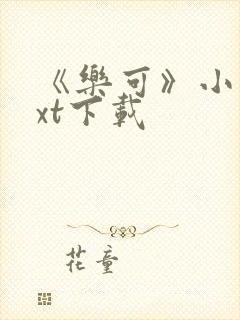 《樂可》小
xt下載
花童